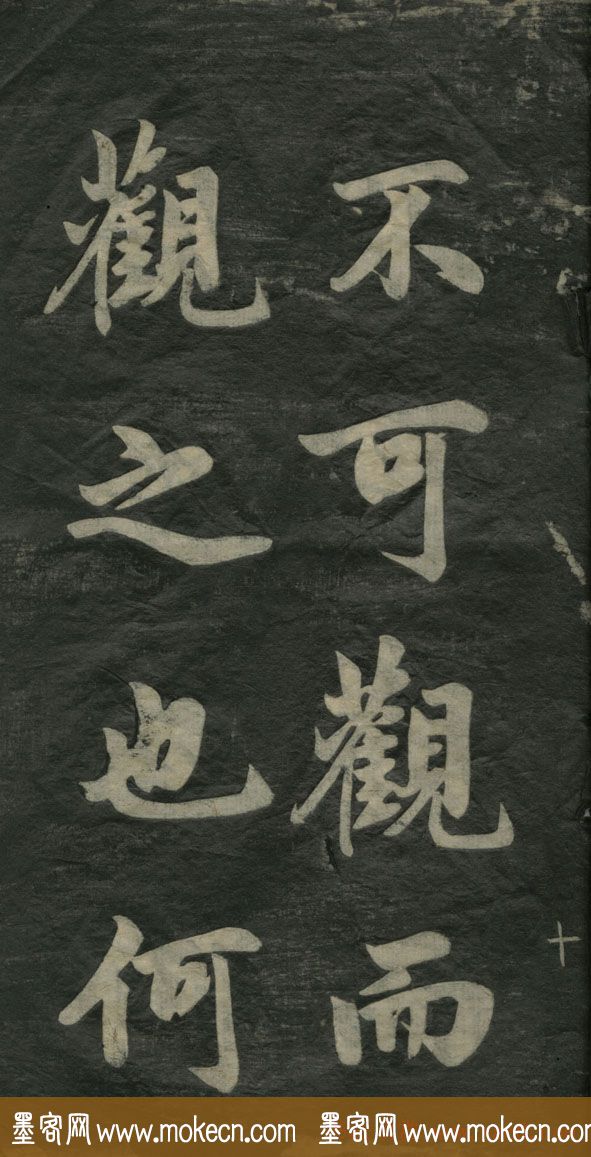 不可觀而
觀之也何
十
墨客网 www.mokecn.com 墨客网 www.mokecn.com